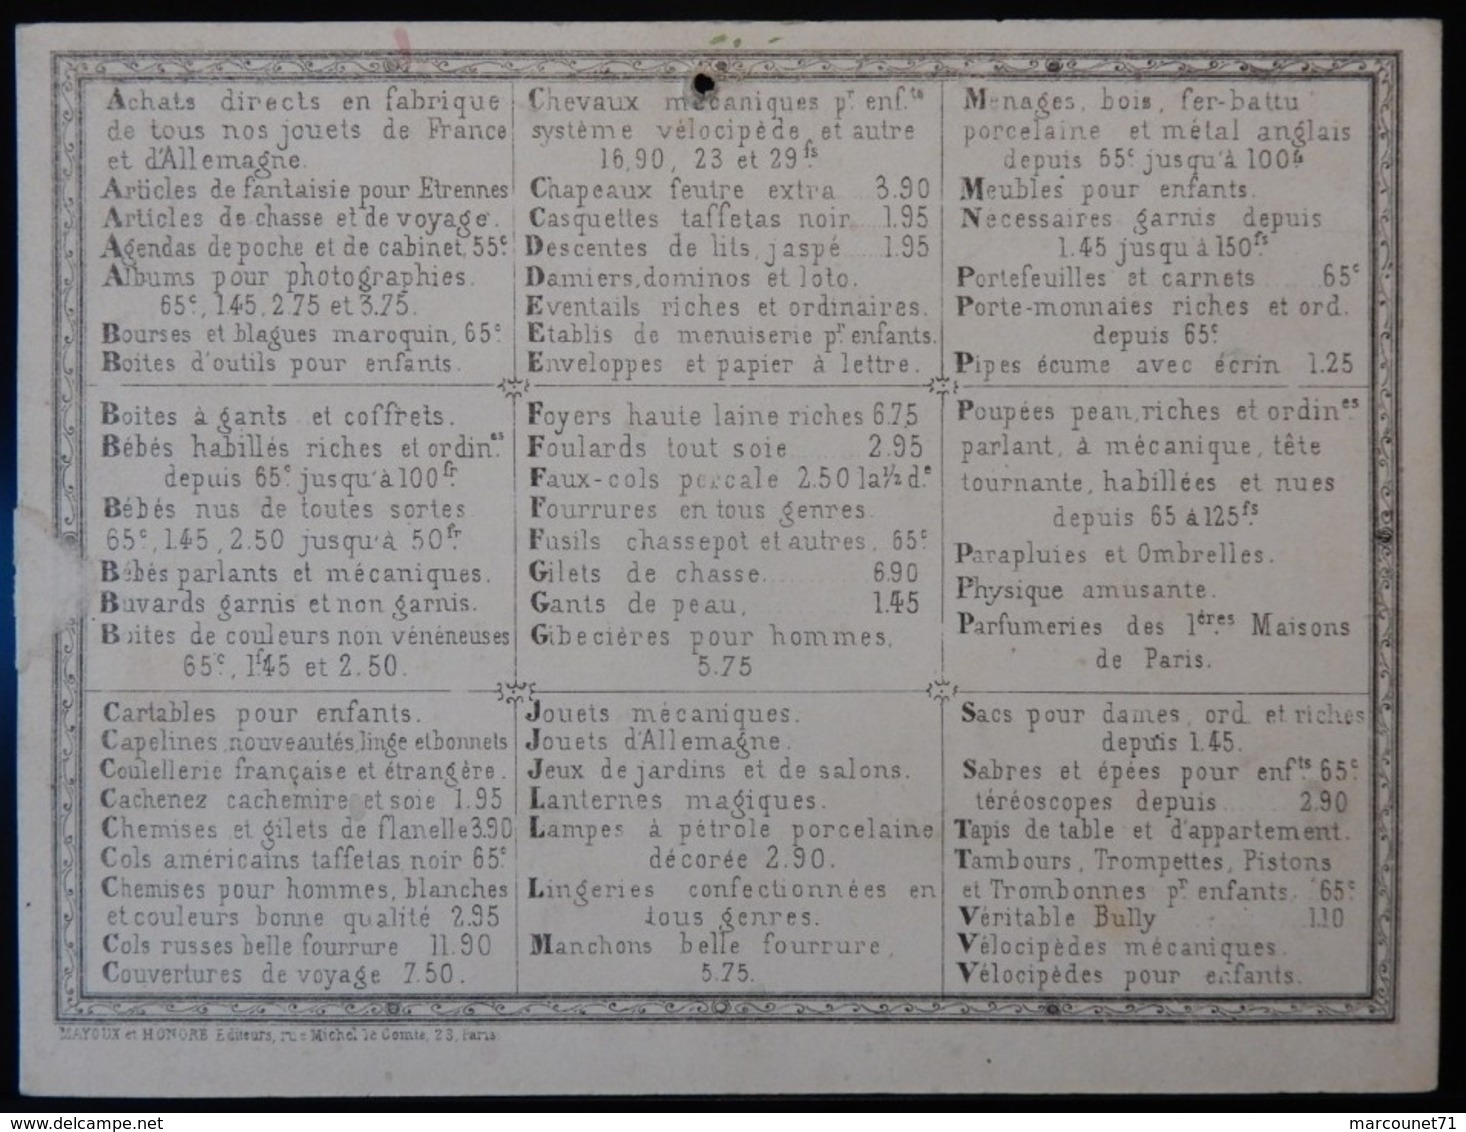 Achats directs en fabrique
de tous nos jouets de France
et d'Allemagne.
Articles de fantaisie pour Etrennes
Articles de chasse et de voyage.
Agendas de poche et de cabinet, 55c
Albums pour photographies.
65c, 1.45, 2.75 et 3.75.
Bourses et blagues maroquin, 65c
Boites d'outils pour enfants.
Chevaux mécaniques pr enf.ts
système vélocipède, et autre
16,90, 23 et 29fs
Chapeaux feutre extra 3.90
Casquettes taffetas noir 1.95
Descentes de lits, jaspé 1.95
Damiers, dominos et loto.
Eventails riches et ordinaires.
Etablis de menuiserie pr enfants.
Enveloppes et papier à lettre.
Menages, bois, fer-battu
porcelaine et métal anglais
depuis 65c jusqu'à 100fs
Meubles pour enfants.
Necessaires garnis depuis
1.45 jusqu'à 150fs
Portefeuilles et carnets 65c
Porte-monnaies riches et ord.
depuis 65c
Pipes écume avec écrin 1.25
Boites à gants et coffrets.
Bébés habillés riches et ordin.es
depuis 65c jusqu'à 100fr.
Bébés nus de toutes sortes
65c, 1.45, 2.50 jusqu'à 50fr.
Bébés parlants et mécaniques.
Buvards garnis et non garnis.
Boites de couleurs non vénéneuses
65c, 1f45 et 2.50.
Foyers haute laine riches 6.75
Foulards tout soie 2.95
Faux-cols percale 2.50 la ½ d.e
Fourrures en tous genres
Fusils chassepot et autres, 65c
Gilets de chasse 6.90
Gants de peau, 1.45
Gibecières pour hommes,
5.75
Poupées peau, riches et ordin es
parlant, à mécanique, tête
tournante, habillées et nues
depuis 65 à 125fs.
Parapluies et Ombrelles.
Physique amusante.
Parfumeries des 1ères Maisons
de Paris.
Cartables pour enfants.
Capelines, nouveautés, linge et bonnets
Coutellerie française et étrangère.
Cachenez cachemire et soie 1.95
Chemises et gilets de flanelle 3.90
Cols américains taffetas noir 65c
Chemises pour hommes, blanches
et couleurs bonne qualité 2.95
Cols russes belle fourrure 11.90
Couvertures de voyage 7.50.
Jouets mécaniques.
Jouets d'Allemagne.
Jeux de jardins et de salons.
Lanternes magiques.
Lampes à pétrole porcelaine
décorée 2.90.
Lingeries confectionnées en
tous genres.
Manchons belle fourrure,
5.75.
Sacs pour dames, ord. et riches
depuis 1.45.
Sabres et épées pour enf.ts 65c
téréoscopes depuis 2.90
Tapis de table et d'appartement.
Tambours, Trompettes, Pistons
et Trombonnes pr enfants, 65c
Véritable Bully 1.10
Vélocipèdes mécaniques.
Vélocipèdes pour enfants.
MAYOUX et HONORÉ Editeurs, rue Michel le Comte, 23, Paris
delcampe.net
marcounet71